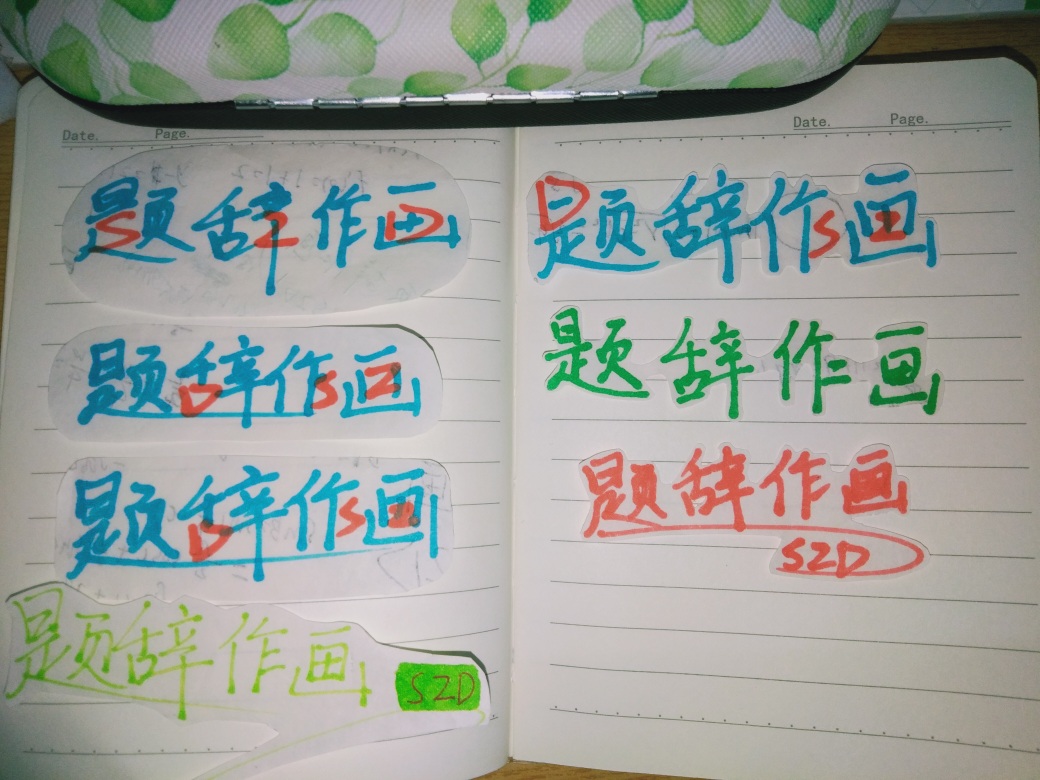 Date. Page.
题辞作画
SZD
题辞作画
DSZ
题辞作画
DSZ
题辞作画
SZD
Date. Page.
题辞作画
DSZ
题辞作画
题辞作画
SZD